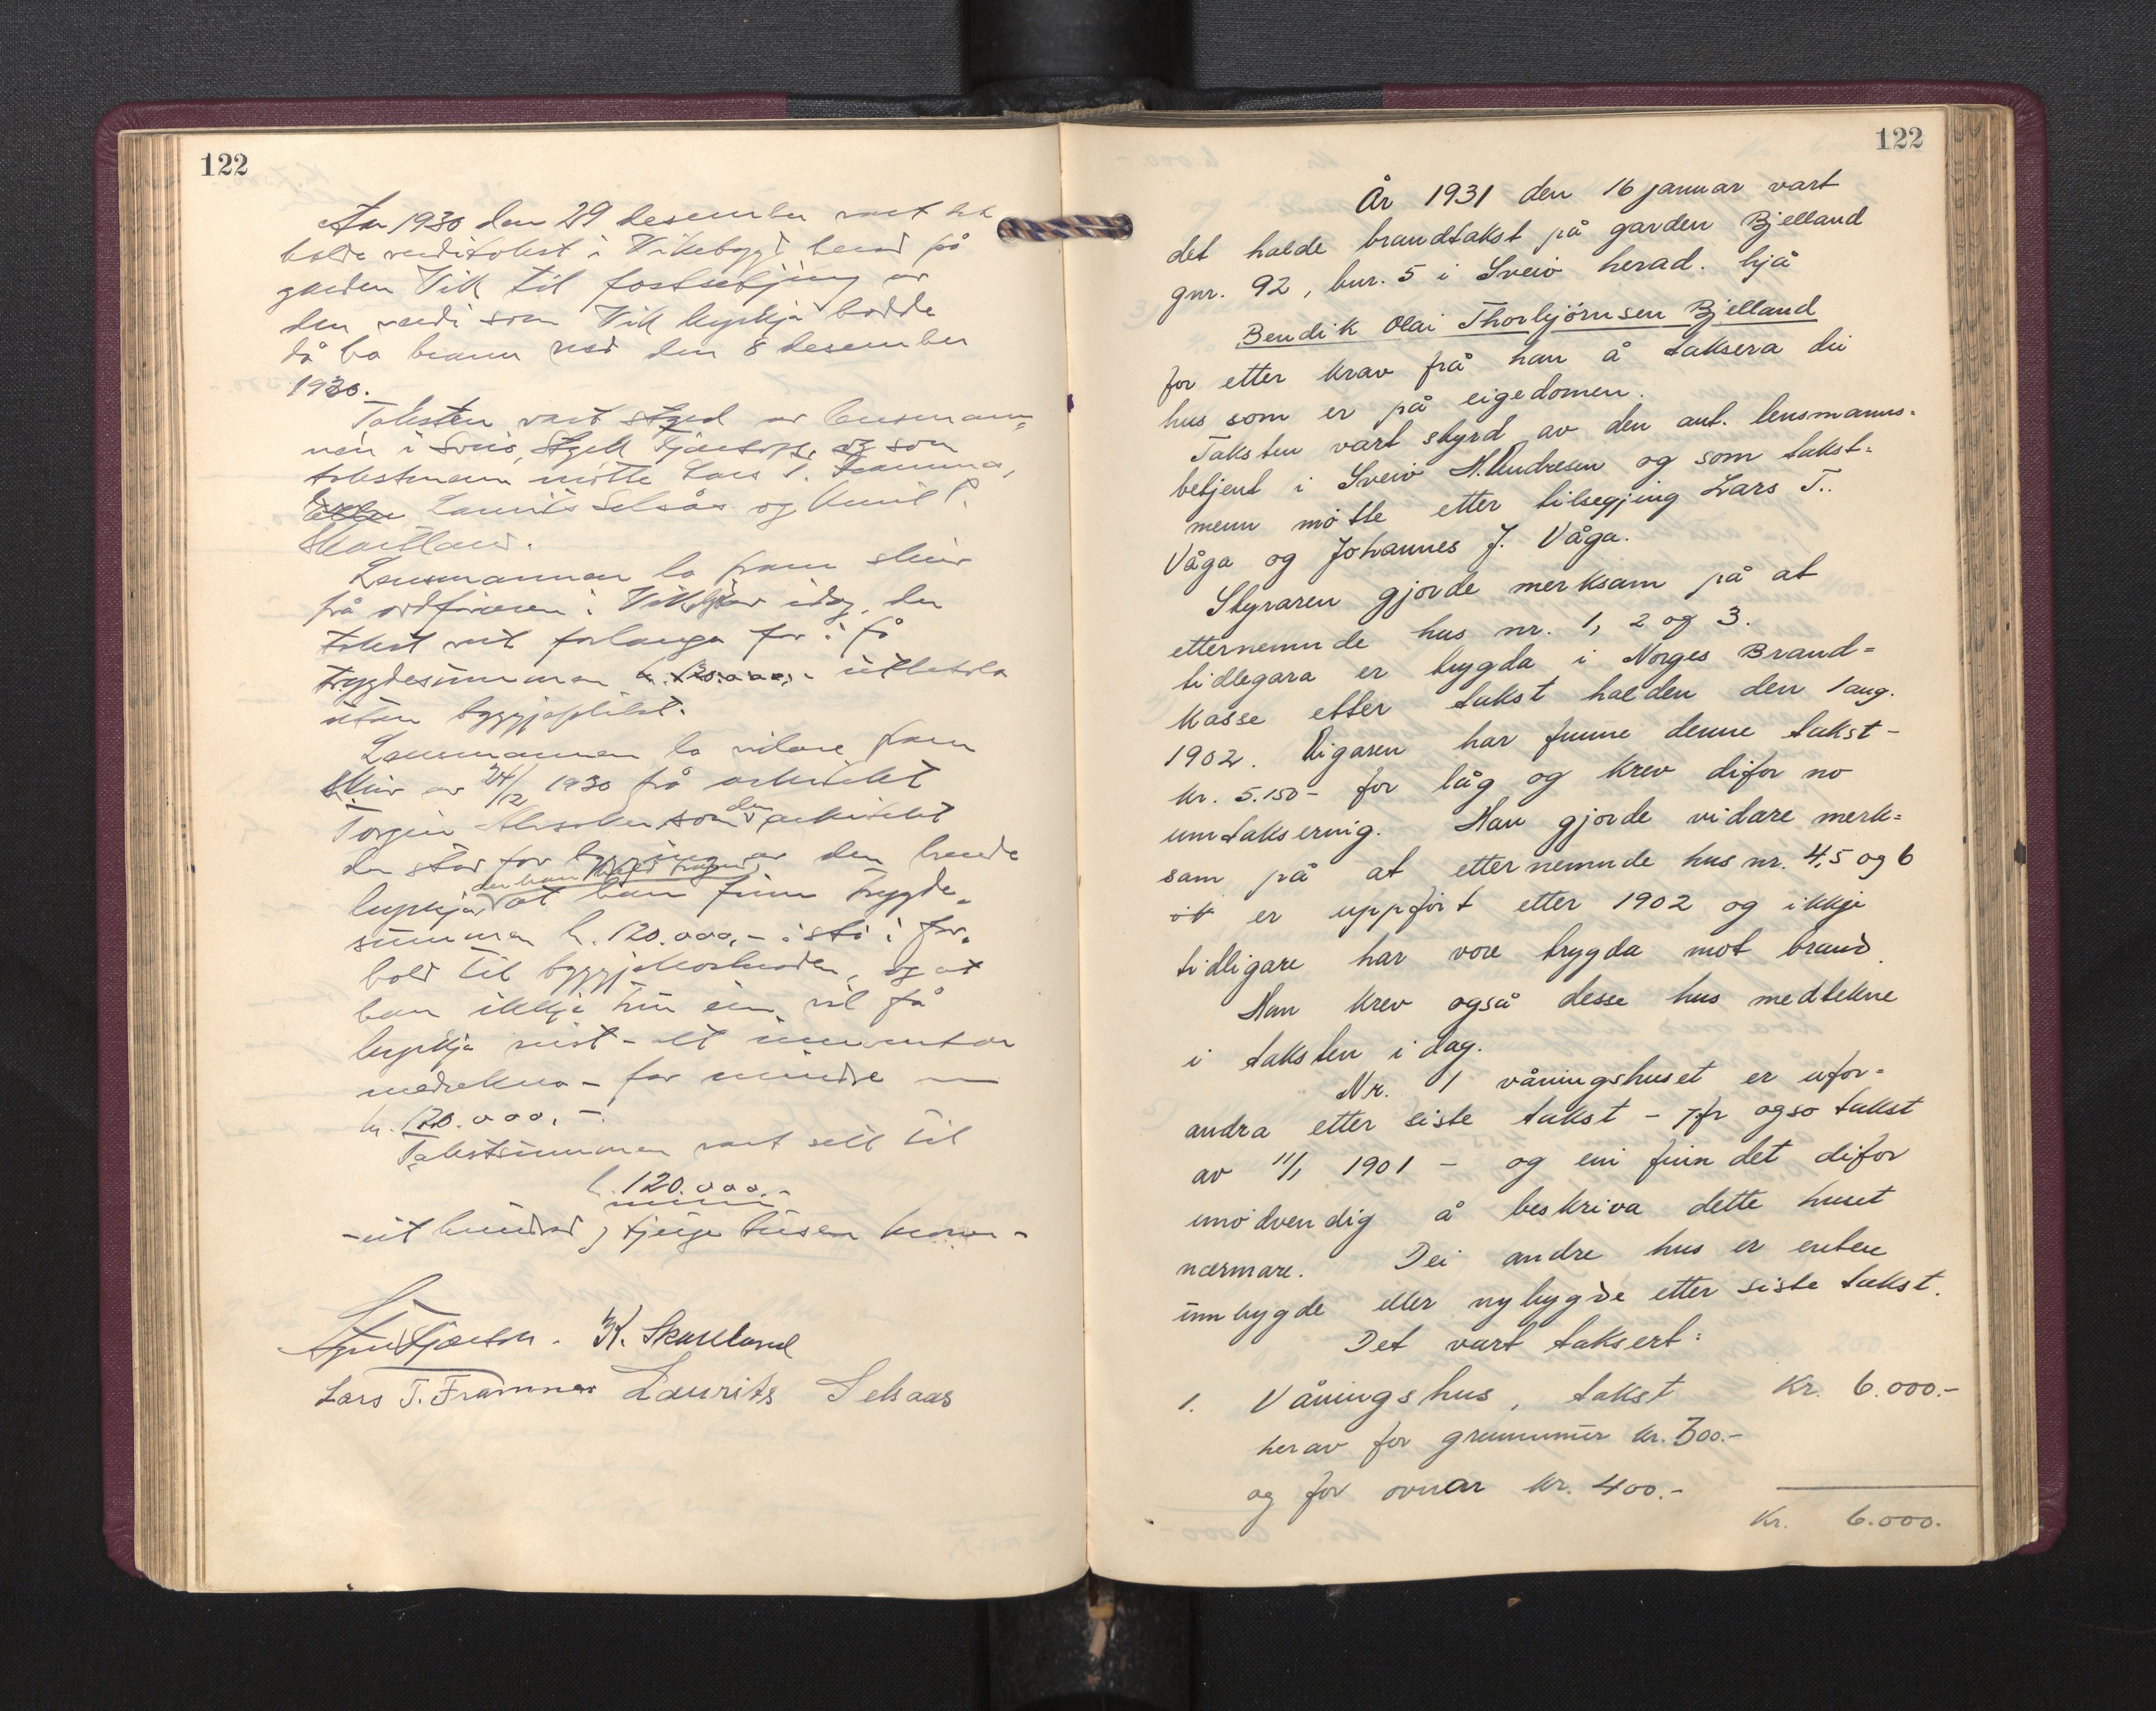 122
År 1930 den 29 desember vart det
halde verditakst i Vikebygd herad på
garden Vik til fastsetjing av
den verdi som Vik kyrkja hadde
då ho brann ned den 8 desember
1930.
Taksten vart styrd av lensmann=
nen i Sveio, og som
takstmenn møtte Lars T. Framnes,
Laurits Selsås og Knut P.
Skartland.
Lensmannen la fram skriv
frå ordføraren i Vikebygd idag, der
takst vert forlangt for å få
trygdesummen kr. 120.000,- utbetala
utan byggjeplikt.
Lensmannen la vidare fram
skriv av 24/12 1930 frå arkitekt
Torgeir Alvsaker, som den arkitekt
der stod for bygging av den brende
kyrkja, at han finn trygde=
summen kr. 120.000,- i sto i for=
hold til byggjekostnaden, og at
han ikkje trur ein vil få
kyrkja reist - alt inventar
medrekna - for mindre enn
kr. 120.000,-.
Takstsummen vart sett til
kr. 120.000,-
-eit hundrad og tjuge tusen kroner-
K. Skartland
Lars T. Framnes Laurits Selsaas
122
År 1931 den 16 januar vart
det halde brandtakst på garden Bjelland
gnr. 92, bnr. 5 i Sveio herad. hjå
Bendik Olai Thorbjørnsen Bjelland
for etter krav frå han å taksera dei
hus som er på eigedomen.
Taksten vart styrd av den aut. lensmanns=
betjent i Sveio N. Andresen og som takst=
menn møtte etter tilsegjing Lars T.
Våga og Johannes J. Våga.
Styraren gjorde merksam på at
etternemnde hus nr. 1, 2 og 3.
tidlegara er trygda i Norges Brand=
kasse etter takst halden den 1 aug.
1902. Eigaren har funne denne takst -
kr. 5.150- for låg og krev difor no
umtaksering. Han gjorde vidare merk=
sam på at etternemnde hus nr. 4, 5 og 6
er uppført etter 1902 og ikkje
tidligare har vore trygda mot brand.
Han krev også desse hus medtekne
i taksten i dag.
Nr. 1 våningshuset er ufor=
andra etter siste takst - jfr ogso takst
av 11/1 1901 - og ein finn det difor
unødvendig å beskriva dette huset
nærmare. Dei andre hus er enten
umbygde eller nybygde etter siste takst.
Det vart taksert:
1. Våningshus, takst Kr. 6.000.-
herav for grunnmur kr. 300.-
og for ovnar kr. 400.-
Kr. 6.000.